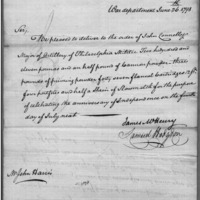 War department June 26th 1798
Sir,
Be pleased to deliver to the order of John Connelly
Major of Artillery of Philadelphia Militia Two hundred and
seven pounds and an half pound of Cannon powder, three
pounds of priming powder, forty seven flannel cartridges 12 pdr.
four portfires and half a Skein of Slowmatch for the purpose
of celebrating the anniversary of Independence on the fourth
day of July next.
James McHenry
Samuel Hodgdon
Mr John Harris